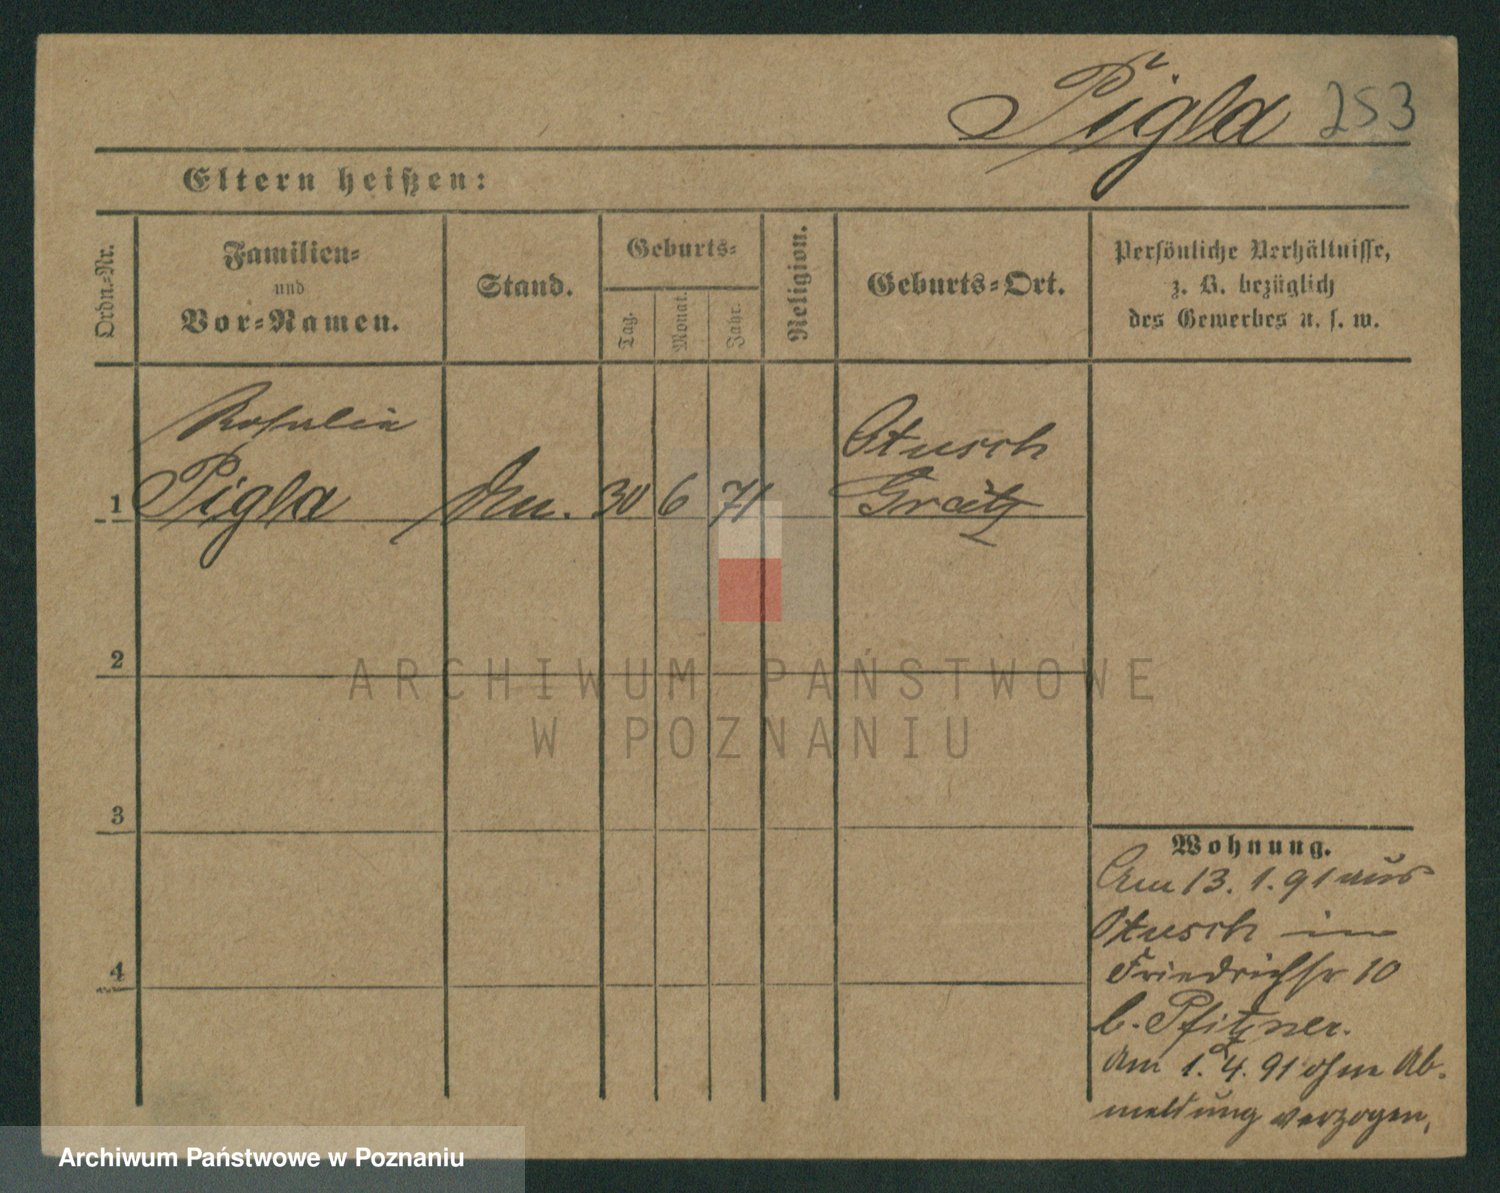 Pigla 253
Eltern heißen:
Ordn.-Nr.
Familien-
und
Vor-Namen.
Stand.
Geburts-
Tag.
Monat.
Jahr.
Religion.
Geburts-Ort.
Persönliche Verhältnisse,
z. B. bezüglich
des Gewerbes u. s. w.
Rosalia
1 Pigla
30 6 71
Otusch
Grätz
2
3
4
Wohnung.
Am 13. 1. 91 aus
Otusch in
Friedrichstr 10
b. Pfitzner.
Am 1. 4. 91 ohne Ab-
meldung verzogen.
ARCHIWUM PAŃSTWOWE
W POZNANIU
Archiwum Państwowe w Poznaniu